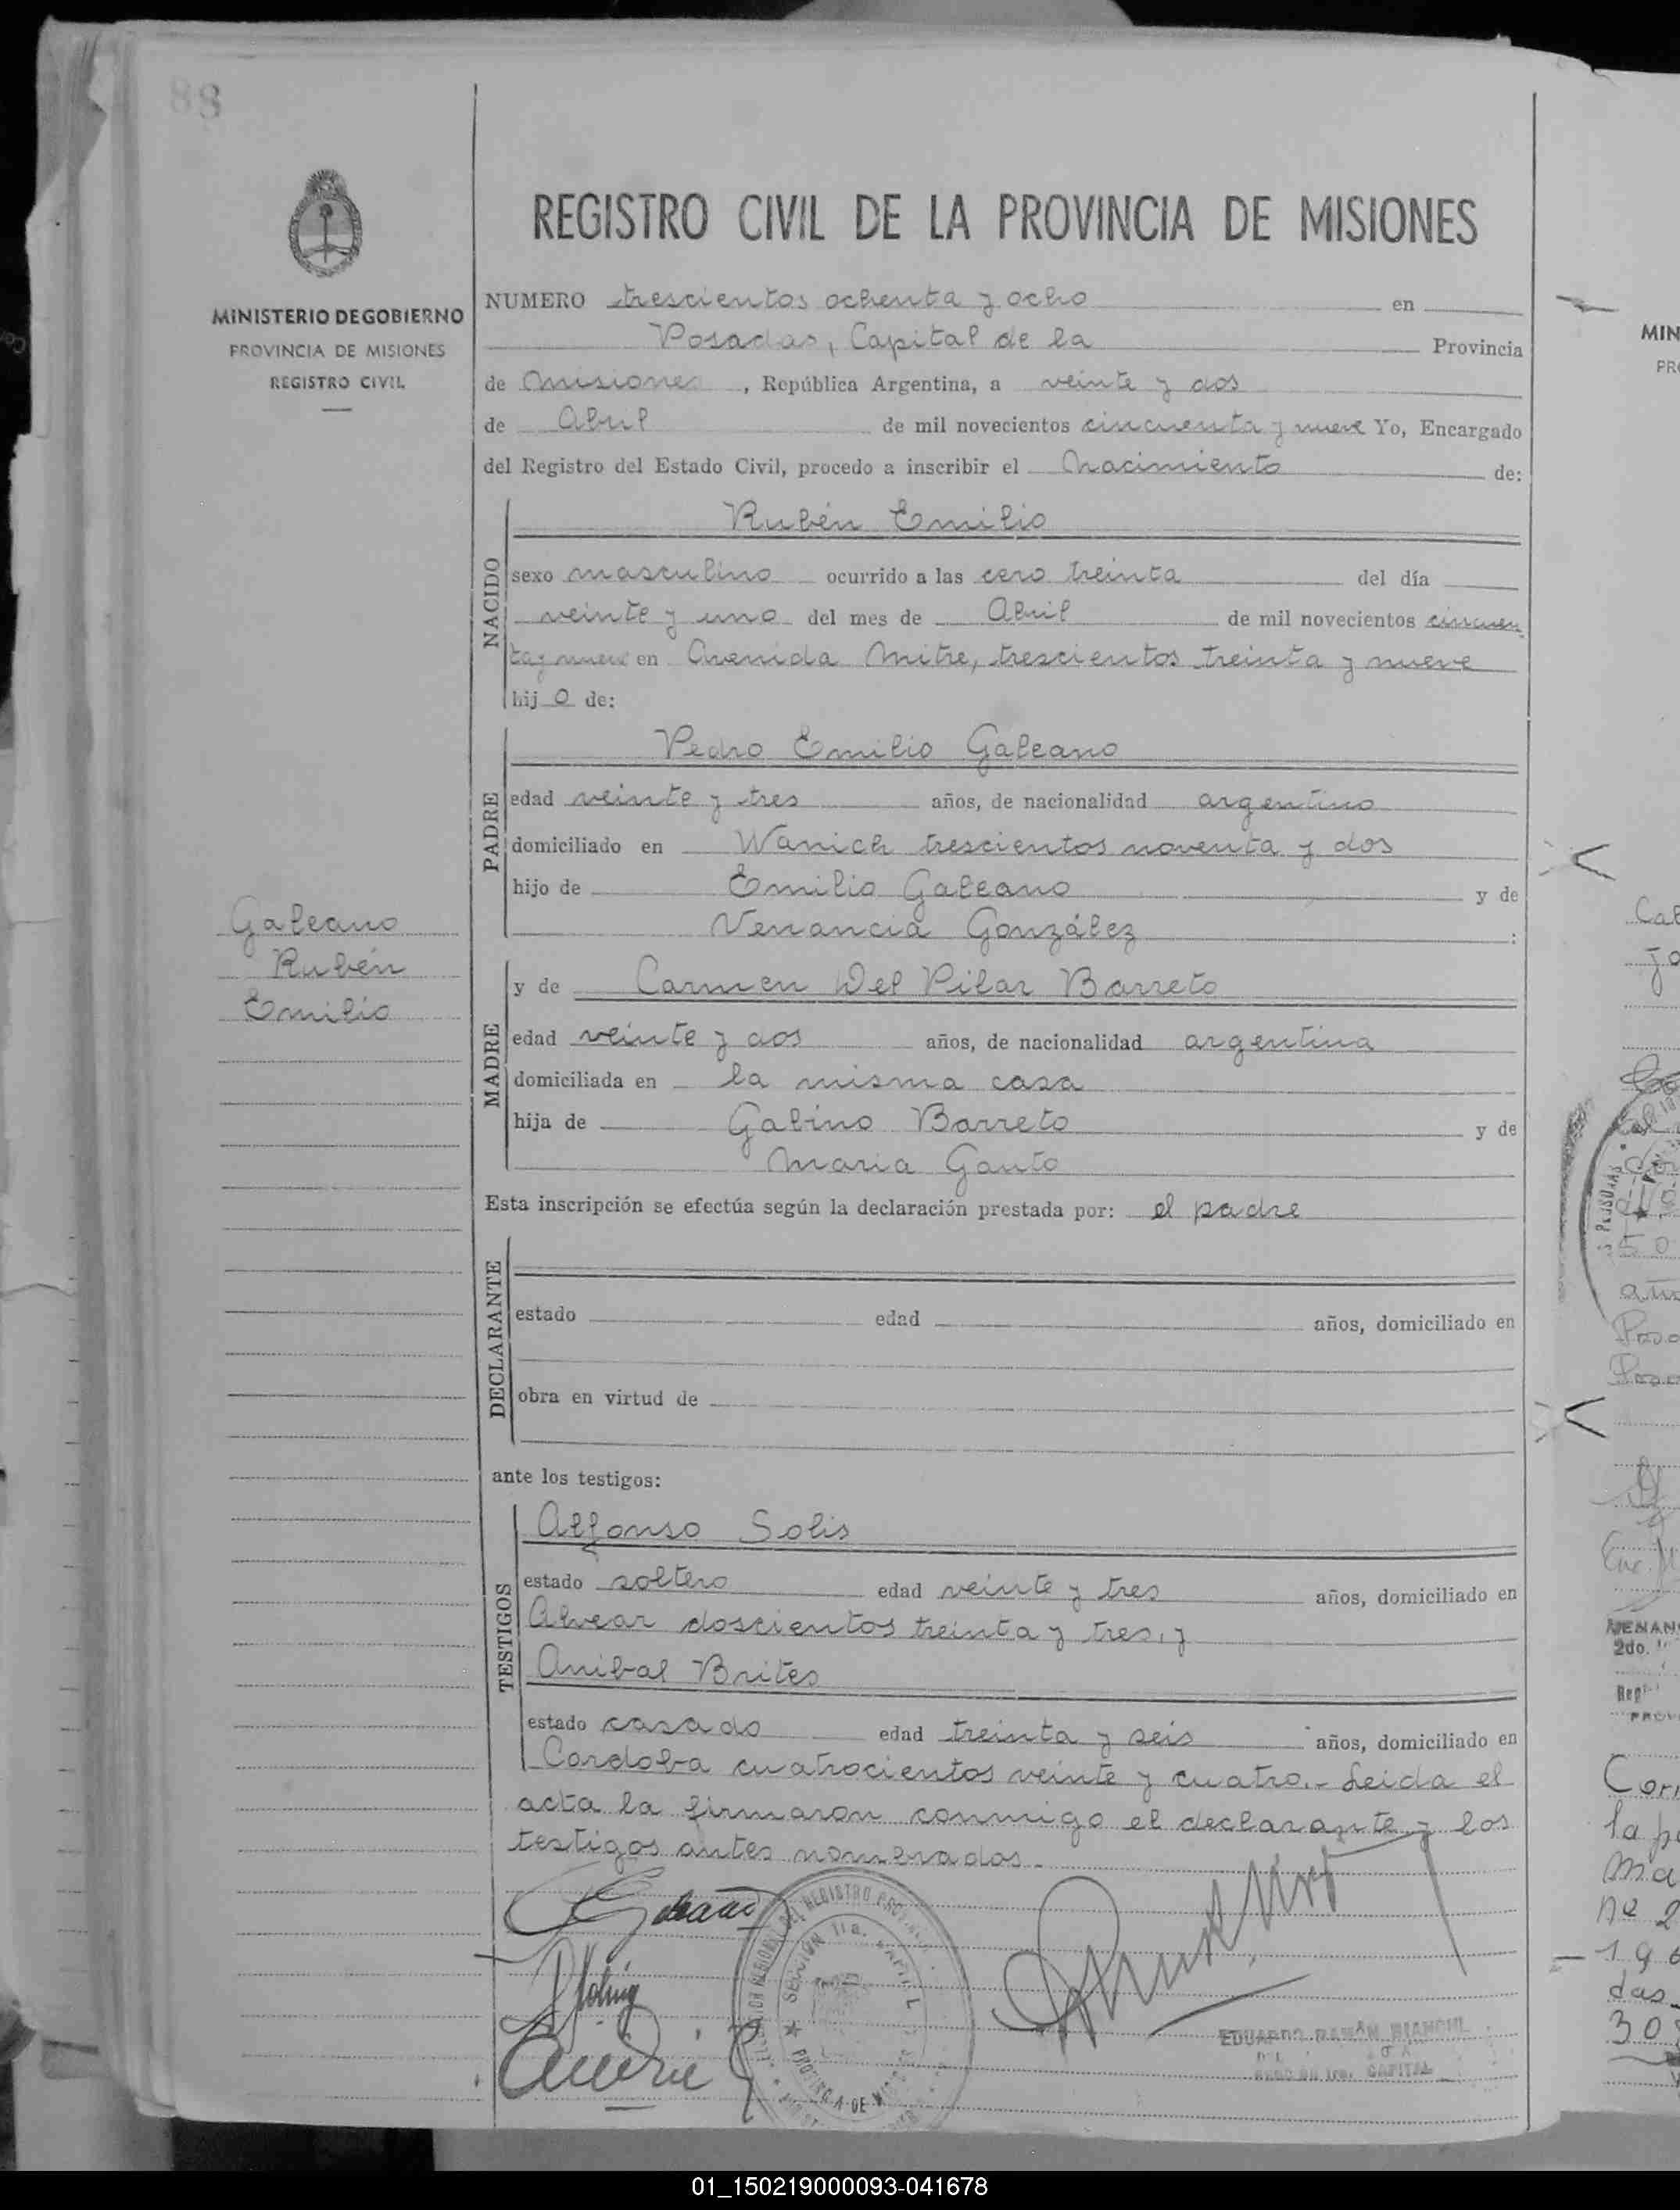 88
REGISTRO CIVIL DE LA PROVINCIA DE MISIONES
MINISTERIO DE GOBIERNO
PROVINCIA DE MISIONES
REGISTRO CIVIL
NUMERO trescientos ochenta y ocho en
Posadas, Capital de la Provincia
de Misiones, República Argentina, a veinte y dos
de Abril de mil novecientos cincuenta y nueve Yo, Encargado
del Registro del Estado Civil, procedo a inscribir el Nacimiento de:
NACIDO
Rubén Emilio
sexo masculino ocurrido a las cero treinta del día
veinte y uno del mes de Abril de mil novecientos cincuen
ta y nueve en Avenida Mitre, trescientos treinta y nueve
hijo de:
PADRE
Pedro Emilio Galeano
edad veinte y tres años, de nacionalidad argentino
domiciliado en Wanich trescientos noventa y dos
hijo de Emilio Galeano y de
Venancia González :
Galeano
Rubén
Emilio
MADRE
y de Carmen Del Pilar Barreto
edad veinte y dos años, de nacionalidad argentina
domiciliada en la misma casa
hija de Gabino Barreto y de
Maria Gauto
Esta inscripción se efectúa según la declaración prestada por: el padre
DECLARANTE
estado edad años, domiciliado en
obra en virtud de
ante los testigos:
TESTIGOS
Alfonso Solis
estado soltero edad veinte y tres años, domiciliado en
Alvear doscientos treinta y tres, y
Anibal Brites
estado casado edad treinta y seis años, domiciliado en
Cordoba cuatrocientos veinte y cuatro.- Leida el
acta la firmaron conmigo el declarante y los
testigos antes nombrados.-
Galeano
EDUARDO RAMÓN BIANCHI
CAPITAL
01_150219000093-041678